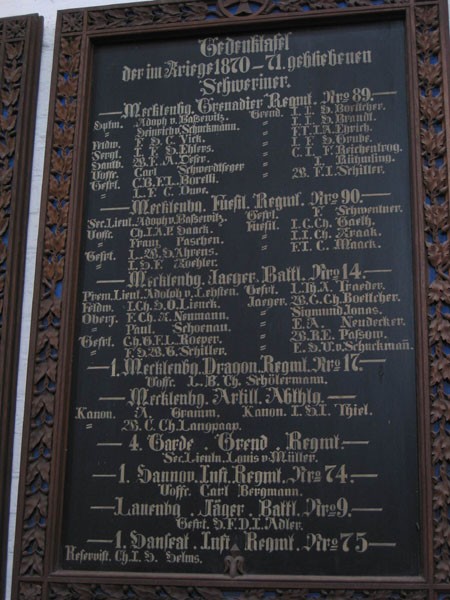 Gedenktafel
der im Kriege 1870-71. gebliebenen
Schweriner.
Mecklenbg. Grenadier Regmt. Nro 89.
Hptm. Adolph v. Baßewitz. Grend. I. F. H. Boettcher.
" Heinrich v. Schuckmann. " I. F. H. Brandt.
Feldw. F. H. C. Vick. " F. F. I. A. Ehrich.
Sergt. I. F. H. Ehlers. "
W. F. A. Leser. " C. I. F. Reichentrog.
Uoffc. Carl Schwerdtfeger " I. Rühmling.
Gefrt. C. B. F. L. Borelli. " W. F. I. Schiller.
" I. F. C. Duve.
Mecklenbg. Füesl. Regmt. Nro 90.
Sec. Lieut. Adolph v. Baßewitz. Gefrt. F. Schwenner.
Uoffc. Ch. I. A. P. Haack. Füesl. I. C. Ch. Gaeth.
" Franz Paschen. " I. I. Ch. Kraak.
Gefrt. L. W. H. Ahrens. " F. I. C. Maack.
" I. H. F. Koehler.
Mecklenbg. Jaeger Battl. Nro 14.
Prem. Lieut. Adolph v. Lehsten. Gefrt. I. Th. A. Traeder.
Feldw. I. Ch. H. O. Lienck. Jaeger. W. C. Ch. Boettcher.
Oberg. F. Ch. A. Neumann. " Sigmund Jonas.
" Paul Schoenau. " E. A. Neudecker.
Gefrt. Ch. G. F. L. Roeper. " W. R. E. Passow.
" F. H. W. G. Schiller. " E. H. U. v. Schuckmañ.
1. Mecklenbg. Dragon. Regmt. Nro 17.
Uoffc. L. B. Ch. Schölermann.
Mecklenbg. Artill. Abthlg.
Kanon. A. Gramm. Kanon. I. H. I. Thiel.
" W. C. Ch. Langpaap.
4. Garde. Grend. Regmt.
Sec. Lieutn. Louis v. Müller.
1. Hannov. Inft. Regmt. Nro 74.
Uoffc. Carl Bergmann.
Lauenbg. Jäger. Battl. Nro 9.
Gefrt. H. F. D. I. Adler.
1. Hanseat. Inft. Regmt. Nro 75
Reservist. Ch. I. H. Helms.